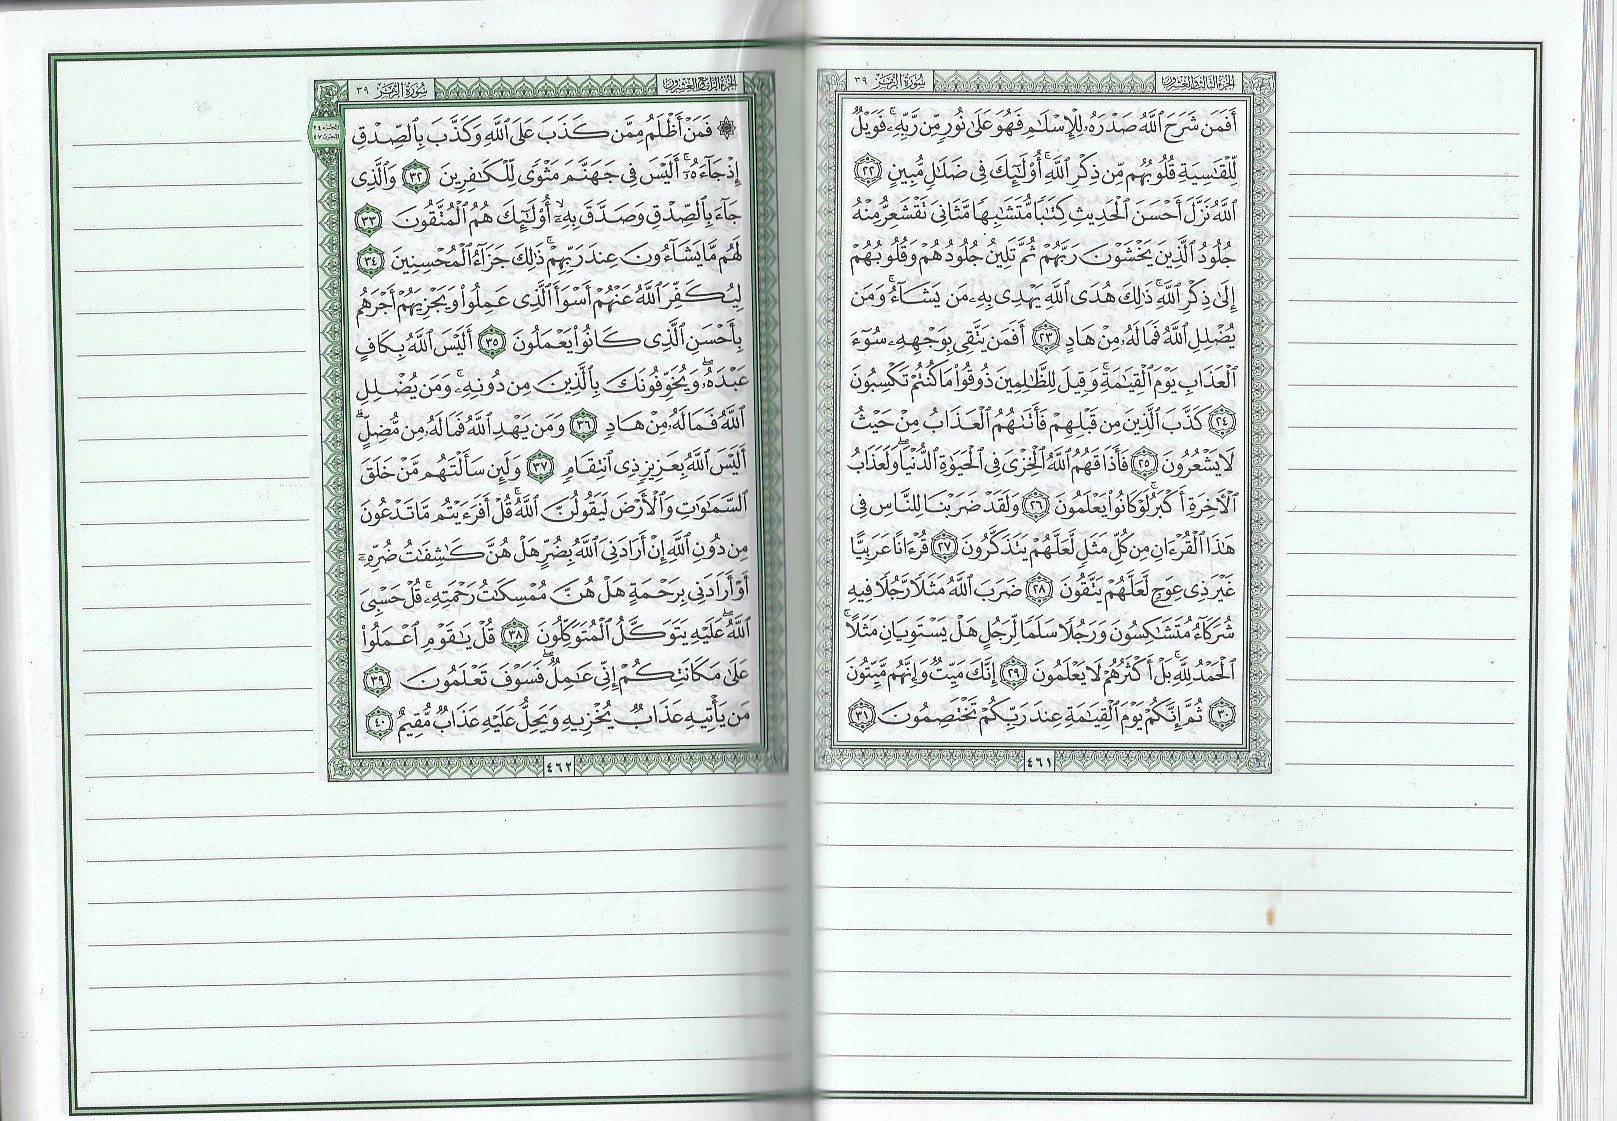 الجزء الثالث والعشرون
سورة الزمر ٣٩
أَفَمَن شَرَحَ ٱللَّهُ صَدْرَهُۥ لِلْإِسْلَٰمِ فَهُوَ عَلَىٰ نُورٍ مِّن رَّبِّهِۦ ۚ فَوَيْلٌ
لِّلْقَٰسِيَةِ قُلُوبُهُم مِّن ذِكْرِ ٱللَّهِ ۚ أُو۟لَٰٓئِكَ فِى ضَلَٰلٍ مُّبِينٍ ٢٢
ٱللَّهُ نَزَّلَ أَحْسَنَ ٱلْحَدِيثِ كِتَٰبًا مُّتَشَٰبِهًا مَّثَانِىَ تَقْشَعِرُّ مِنْهُ
جُلُودُ ٱلَّذِينَ يَخْشَوْنَ رَبَّهُمْ ثُمَّ تَلِينُ جُلُودُهُمْ وَقُلُوبُهُمْ
إِلَىٰ ذِكْرِ ٱللَّهِ ۚ ذَٰلِكَ هُدَى ٱللَّهِ يَهْدِى بِهِۦ مَن يَشَآءُ ۚ وَمَن
يُضْلِلِ ٱللَّهُ فَمَا لَهُۥ مِنْ هَادٍ ٢٣ أَفَمَن يَتَّقِى بِوَجْهِهِۦ سُوٓءَ
ٱلْعَذَابِ يَوْمَ ٱلْقِيَٰمَةِ ۚ وَقِيلَ لِلظَّٰلِمِينَ ذُوقُوا۟ مَا كُنتُمْ تَكْسِبُونَ
٢٤ كَذَّبَ ٱلَّذِينَ مِن قَبْلِهِمْ فَأَتَىٰهُمُ ٱلْعَذَابُ مِنْ حَيْثُ
لَا يَشْعُرُونَ ٢٥ فَأَذَاقَهُمُ ٱللَّهُ ٱلْخِزْىَ فِى ٱلْحَيَوٰةِ ٱلدُّنْيَا ۖ وَلَعَذَابُ
ٱلْـَٔاخِرَةِ أَكْبَرُ ۚ لَوْ كَانُوا۟ يَعْلَمُونَ ٢٦ وَلَقَدْ ضَرَبْنَا لِلنَّاسِ فِى
هَٰذَا ٱلْقُرْءَانِ مِن كُلِّ مَثَلٍ لَّعَلَّهُمْ يَتَذَكَّرُونَ ٢٧ قُرْءَانًا عَرَبِيًّا
غَيْرَ ذِى عِوَجٍ لَّعَلَّهُمْ يَتَّقُونَ ٢٨ ضَرَبَ ٱللَّهُ مَثَلًا رَّجُلًا فِيهِ
شُرَكَآءُ مُتَشَٰكِسُونَ وَرَجُلًا سَلَمًا لِّرَجُلٍ هَلْ يَسْتَوِيَانِ مَثَلًا ۚ
ٱلْحَمْدُ لِلَّهِ ۚ بَلْ أَكْثَرُهُمْ لَا يَعْلَمُونَ ٢٩ إِنَّكَ مَيِّتٌ وَإِنَّهُم مَّيِّتُونَ
٣٠ ثُمَّ إِنَّكُمْ يَوْمَ ٱلْقِيَٰمَةِ عِندَ رَبِّكُمْ تَخْتَصِمُونَ ٣١
٤٦١
الجزء الرابع والعشرون
سورة الزمر ٣٩
الجزء ٢٤
الحزب ٤٧
۞ فَمَنْ أَظْلَمُ مِمَّن كَذَبَ عَلَى ٱللَّهِ وَكَذَّبَ بِٱلصِّدْقِ
إِذْ جَآءَهُۥٓ ۚ أَلَيْسَ فِى جَهَنَّمَ مَثْوًى لِّلْكَٰفِرِينَ ٣٢ وَٱلَّذِى
جَآءَ بِٱلصِّدْقِ وَصَدَّقَ بِهِۦٓ ۙ أُو۟لَٰٓئِكَ هُمُ ٱلْمُتَّقُونَ ٣٣
لَهُم مَّا يَشَآءُونَ عِندَ رَبِّهِمْ ۚ ذَٰلِكَ جَزَآءُ ٱلْمُحْسِنِينَ ٣٤
لِيُكَفِّرَ ٱللَّهُ عَنْهُمْ أَسْوَأَ ٱلَّذِى عَمِلُوا۟ وَيَجْزِيَهُمْ أَجْرَهُم
بِأَحْسَنِ ٱلَّذِى كَانُوا۟ يَعْمَلُونَ ٣٥ أَلَيْسَ ٱللَّهُ بِكَافٍ
عَبْدَهُۥ ۖ وَيُخَوِّفُونَكَ بِٱلَّذِينَ مِن دُونِهِۦ ۚ وَمَن يُضْلِلِ
ٱللَّهُ فَمَا لَهُۥ مِنْ هَادٍ ٣٦ وَمَن يَهْدِ ٱللَّهُ فَمَا لَهُۥ مِن مُّضِلٍّ ۗ
أَلَيْسَ ٱللَّهُ بِعَزِيزٍ ذِى ٱنتِقَامٍ ٣٧ وَلَئِن سَأَلْتَهُم مَّنْ خَلَقَ
ٱلسَّمَٰوَٰتِ وَٱلْأَرْضَ لَيَقُولُنَّ ٱللَّهُ ۚ قُلْ أَفَرَءَيْتُم مَّا تَدْعُونَ
مِن دُونِ ٱللَّهِ إِنْ أَرَادَنِىَ ٱللَّهُ بِضُرٍّ هَلْ هُنَّ كَٰشِفَٰتُ ضُرِّهِۦٓ
أَوْ أَرَادَنِى بِرَحْمَةٍ هَلْ هُنَّ مُمْسِكَٰتُ رَحْمَتِهِۦ ۚ قُلْ حَسْبِىَ
ٱللَّهُ ۖ عَلَيْهِ يَتَوَكَّلُ ٱلْمُتَوَكِّلُونَ ٣٨ قُلْ يَٰقَوْمِ ٱعْمَلُوا۟
عَلَىٰ مَكَانَتِكُمْ إِنِّى عَٰمِلٌ ۖ فَسَوْفَ تَعْلَمُونَ ٣٩
مَن يَأْتِيهِ عَذَابٌ يُخْزِيهِ وَيَحِلُّ عَلَيْهِ عَذَابٌ مُّقِيمٌ ٤٠
٤٦٢